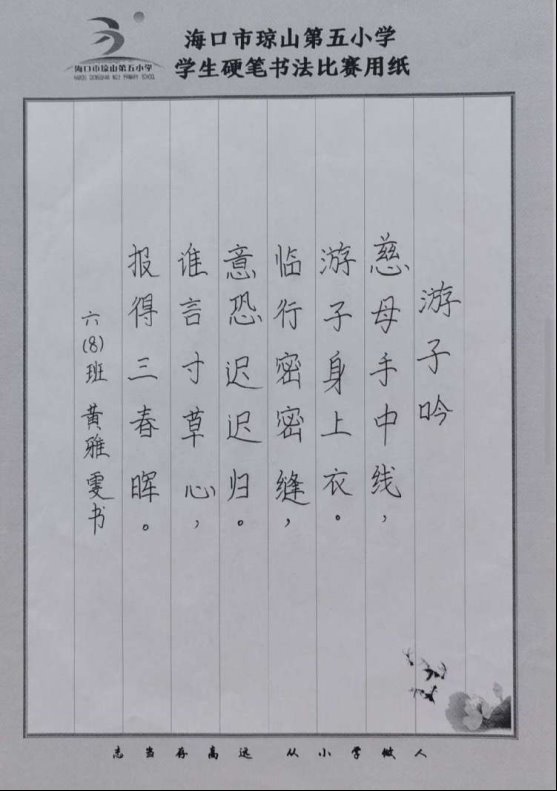 海口市琼山第五小学
海口市琼山第五小学
学生硬笔书法比赛用纸
游子吟
慈母手中线，
游子身上衣。
临行密密缝，
意恐迟迟归。
谁言寸草心，
报得三春晖。
六(8)班 黄雅雯书
志当存高远 从小学做人